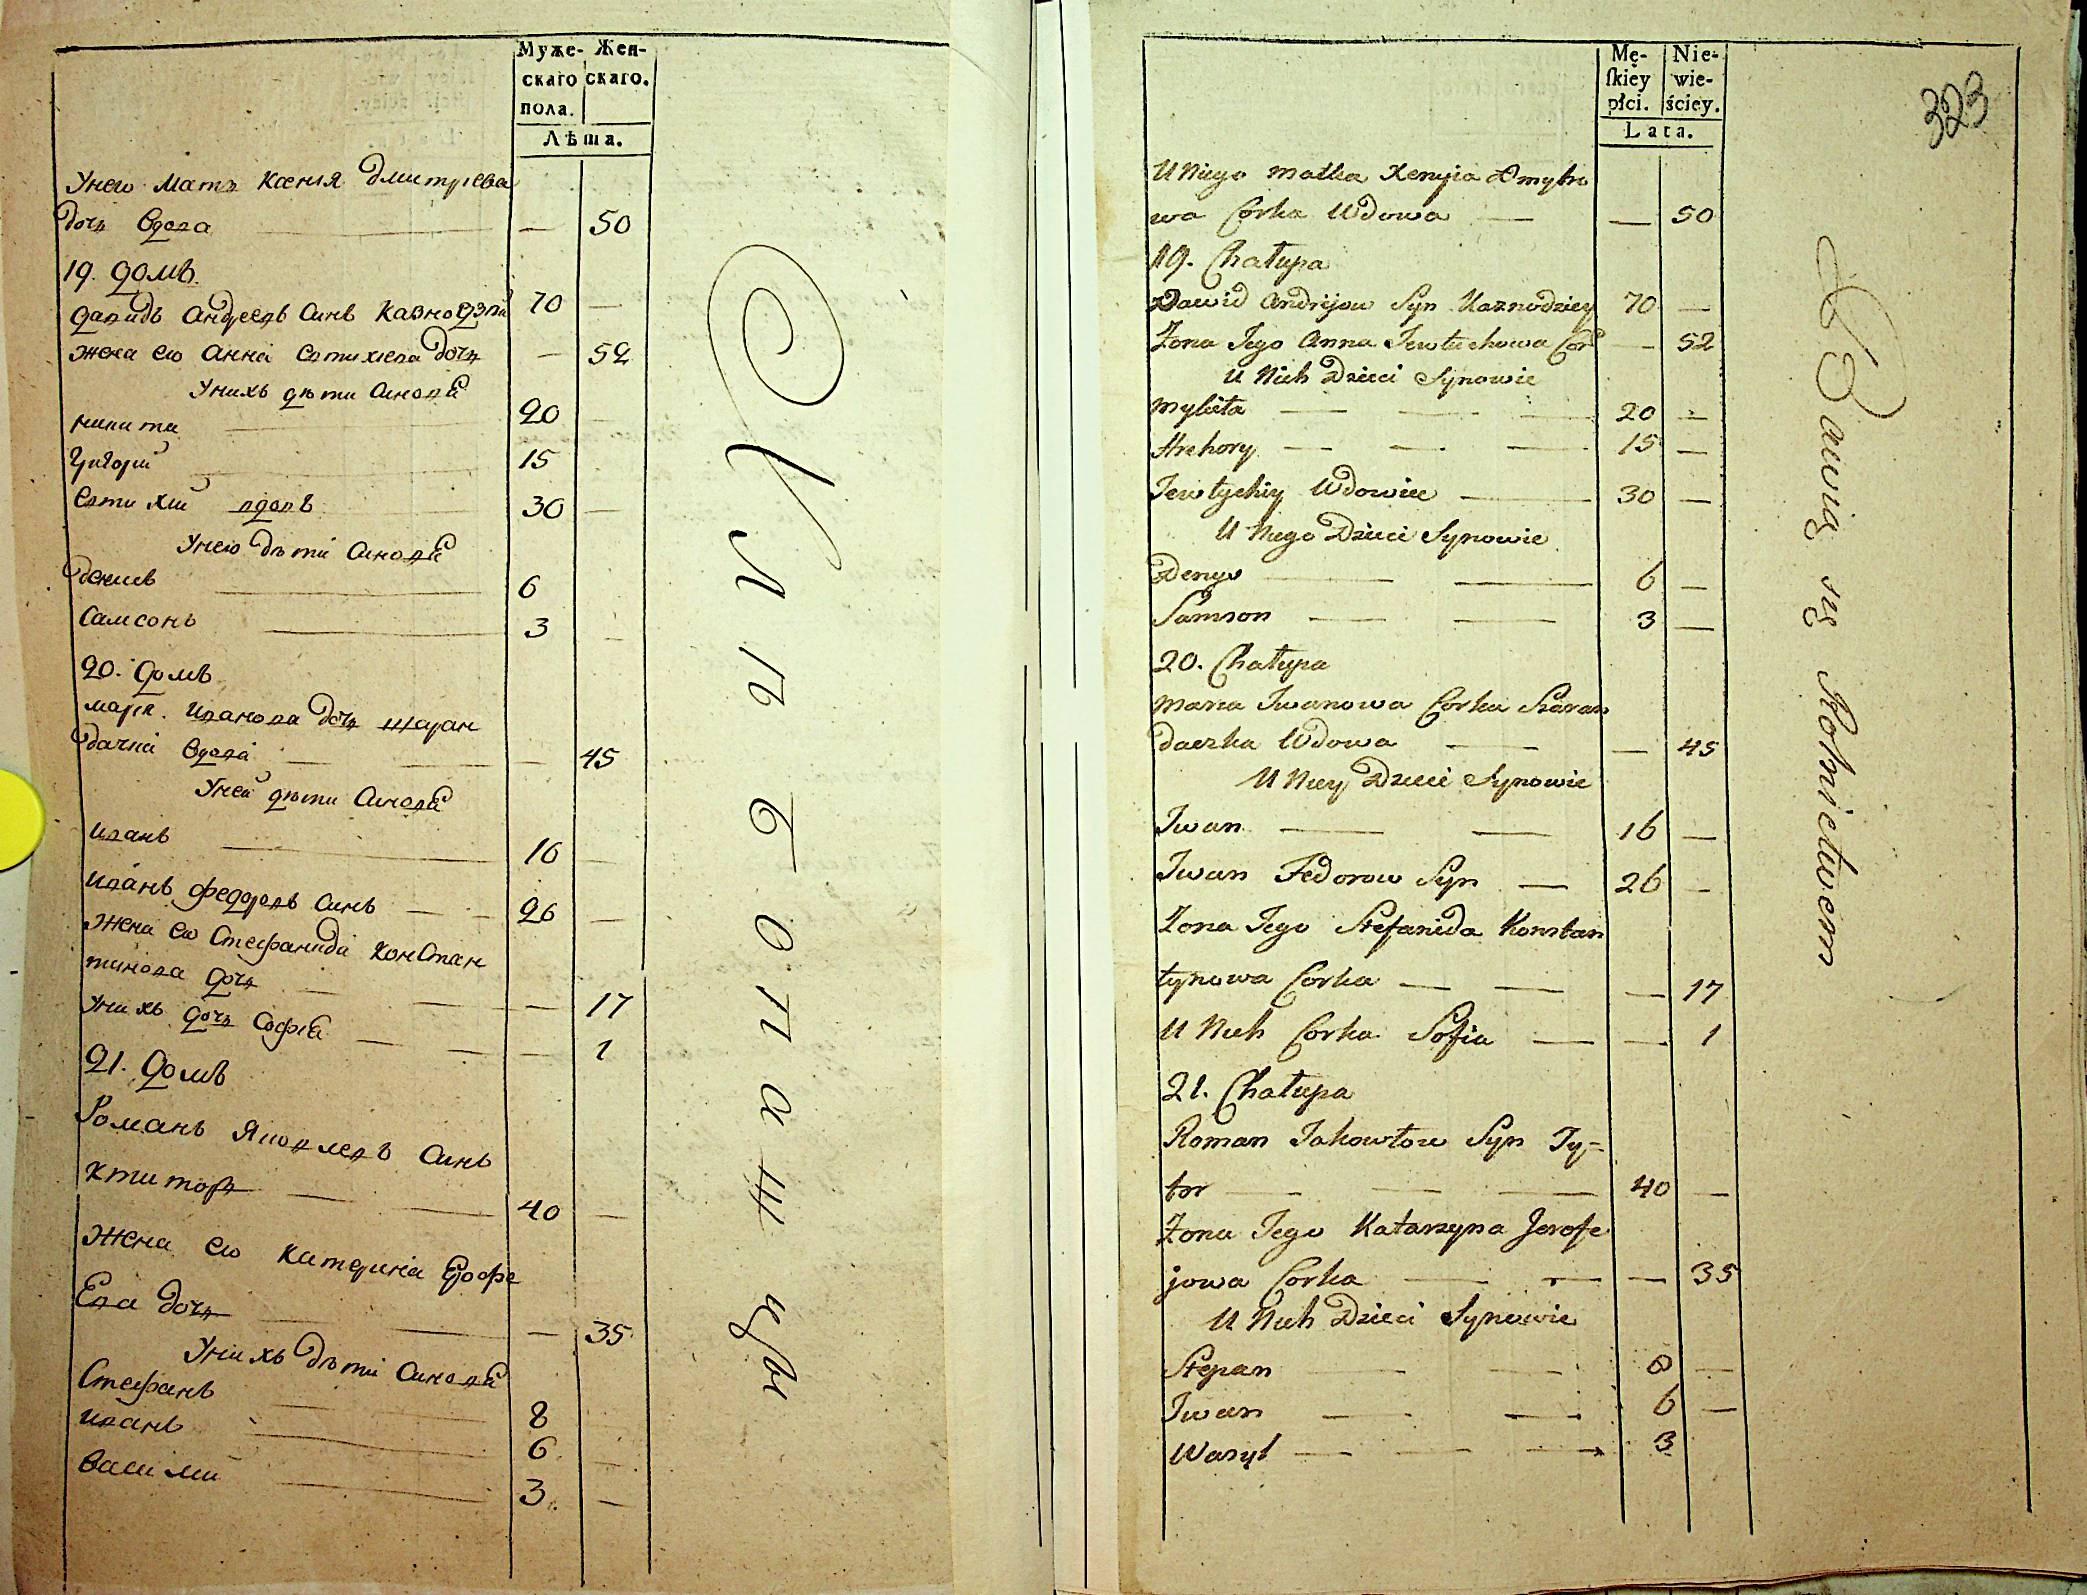 Муже- Жен-
скаго скаго.
пола.
Лѣта.
Унего Мать Ксения Дмитриева
дочь вдова — — 50
19. домъ
давидъ Андреевъ Синъ Казнодзѣй 70 —
жена его Анна Евтихиева дочь — 52
Унихъ дѣти Синовя
Микита 20 —
Григорий 15
Евтихий вдовъ 30 —
Унего дѣти Синовя
денисъ 6
Самсонъ 3 —
20. домъ
Мария Иванова дочь шаран
дачка вдова — — — 45
Уней дѣти Синовя
Иванъ 16 —
Иванъ Федоровъ Синъ — — 26 —
Жена его Стефанида Констан
тинова дочь — — — 17
Унихъ дочь София — — — 1
21. домъ
Романъ Яковлевъ Синъ
Ктиторъ — — 40 —
Жена его Катерина Ерофе
Ева дочь — — — 35
Унихъ дѣти Синовя
Стефанъ 8
Иванъ 6 —
Васили 3 —
Хлѣбопашцы
Mę- Nie-
ſkiey wie-
płci. ściey.
Lata.
323
U Niego Matka Xenyia Dmytro
wa Corka Wdowa — — 50
19. Chałupa
Dawid Andrijow Syn Kaznodziey 70 —
Zona Jego Anna Jewtuchowa Cor — 52
U Nich Dzieci Synowie
Mykita — — — 20 —
Hrehory — — — 15 —
Jewtychiy Wdowiec — 30 —
U Niego Dzieci Synowie
Denys — — 6 —
Samson — — 3 —
20. Chałupa
Maria Jwanowa Corka Szaran
daczka Wdowa — — 45
U Niey Dzieci Synowie
Jwan — — 16 —
Jwan Fedorow Syn — 26 —
Zona Jego Stefanida Konstan
tynowa Corka — — — 17
U Nich Corka Sofia — — 1
21. Chałupa
Roman Jakowłow Syn Ty=
tor — — — 40 —
Zona Jego Katarzyna Jerofe
jowa Corka — — — 35
U Nich Dzieci Synowie
Stepan — — 8 —
Jwan — — 6 —
Wasyl — — — 3
Bawią się Rolnictwem